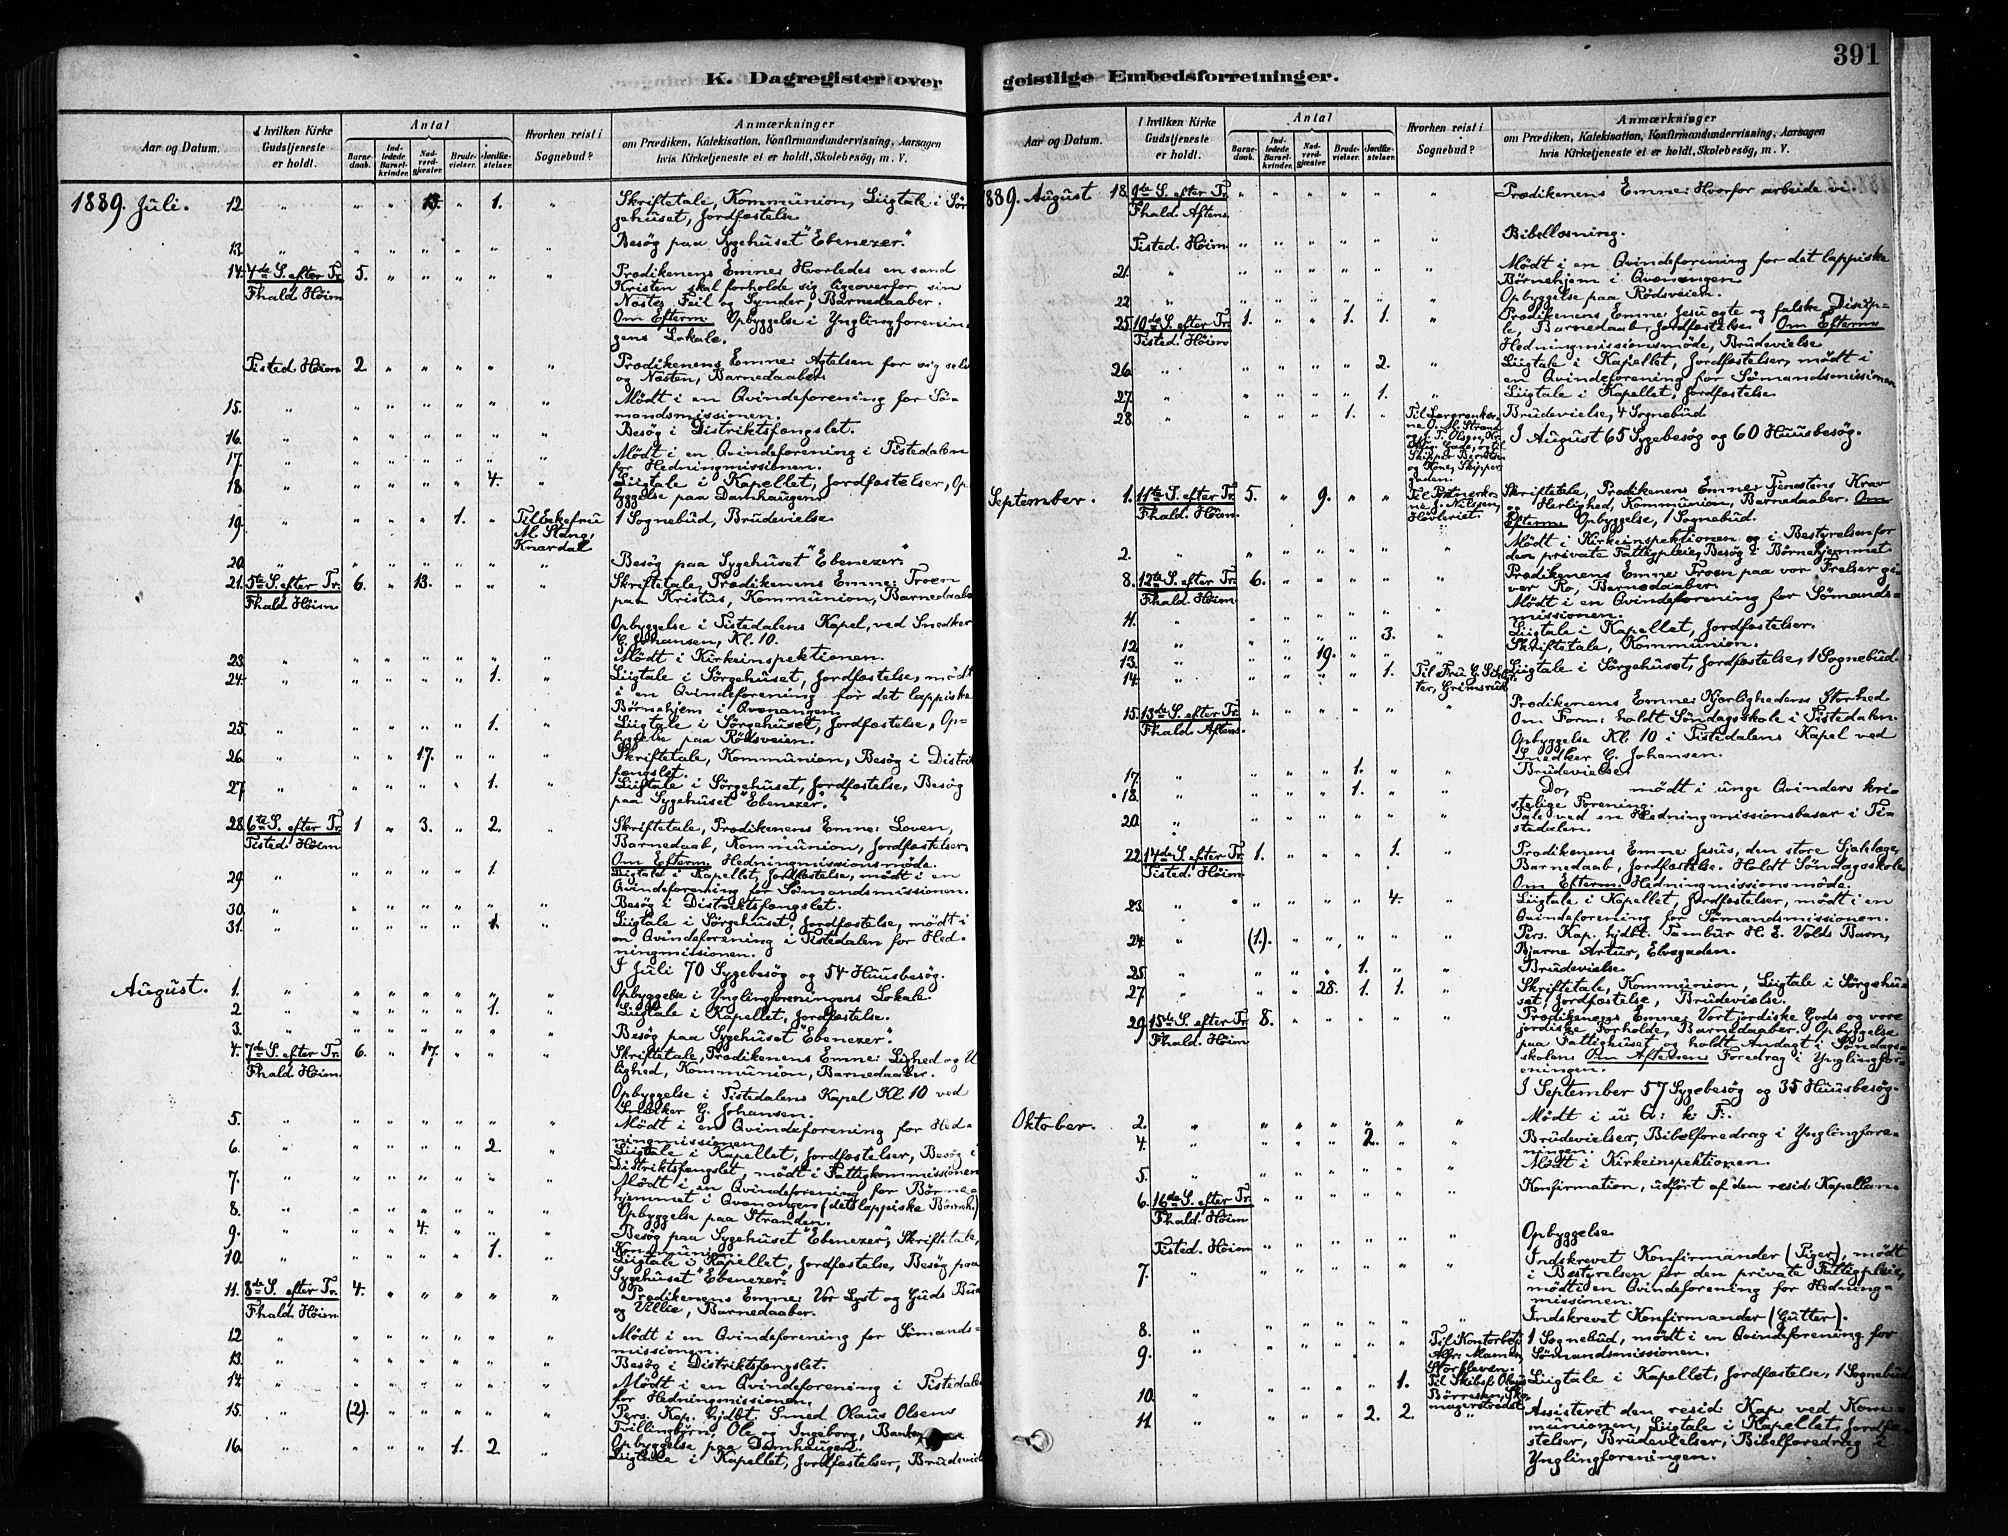 391
K. Dagregister over
geistlige Embedsforretninger.
Aar og Datum.
I hvilken Kirke Gudstjeneste er holdt.
Antal
Barnedaab.
Indledede Barselkvinder.
Nadverdgjæster.
Brudevielser.
Jordfæstelser.
Hvorhen reist i Sognebud?
Anmærkninger
om Prædiken, Katekisation, Konfirmandundervisning, Aarsagen
hvis Kirketjeneste ei er holdt, Skolebesög, m. V.
1889. Juli. 12. 13. 1. Skriftetale, Kommunion, Liigtale i Sör
gehuset, Jordfæstelse.
13. Besög paa Sygehuset "Ebenezer."
14. 4de S. efter Tr. 5. Prædikenens Emne: Hvorledes en sand
Fhald. Höim. Kristen skal forholde sig ligeoverfor sin
Næstes Feil og Synder, Barnedaaber.
Om Efterm. Opbyggelse i Ynglingforenin-
gens Lokale.
Tisted. Höim 2 Prædikenens Emne: Agtelsen for sig selv
og Næsten, Barnedaaber.
15. Mödt i en Qvindeforening for Sö-
mandsmissionen.
16. Besög i Distriktsfængslet.
17. Mödt i en Qvindeforening i Tistedalen
for Hedningmissionen.
18. 4. Liigtale i Kapellet, Jordfæstelser, Op
byggelse paa Damhaugen.
19. 1. Til Enkefru 1 Sognebud, Brudevielse
M. Stang,
Knardal
20. Besög paa Sygehuset "Ebenezer."
21. 5te S. efter Tr. 6. 13. Skriftetale, Prædikenens Emne: Troen
Fhald. Höim paa Kristus, Kommunion, Barnedaaber
Opbyggelse i Tistedalens Kapel, ved Snedker
G. Johansen, Kl. 10.
23. Mödt i Kirkeinspektionen.
24. 1. Liigtale i Sörgehuset, Jordfæstelse, mödt
i en Qvindeforening for det lappiske
Börnehjem i Qvænangen.
25. 1. Liigtale i Sörgehuset, Jordfæstelse, Op-
byggelse paa Rödsveien.
26. 17. Skriftetale, Kommunion, Besög i Distrik
fængslet.
27. 1. Liigtale i Sörgehuset, Jordfæstelse, Besög
paa Sygehuset "Ebenezer."
28. 6te S. efter Tr. 1 3. 2. Skriftetale, Prædikenens Emne: Loven,
Tisted. Höim Barnedaab, Kommunion, Jordfæstelser,
Om Efterm. Hedningmissionsmöde.
29. 1. Liigtale i Kapellet, Jordfæstelse, mödt i en
Qvindeforening for Sömandsmissionen.
30. Besög i Distriktsfængslet.
31. 1. Liigtale i Sörgehuset, Jordfæstelse, mödt i
en Qvindeforening i Tistedalen for Hed-
ningmissionen.
I Juli 70 Sygebesög og 54 Huusbesög.
August. 1. Opbyggelse i Ynglingforeningens Lokale.
2 1. Liigtale i Kapellet, Jordfæstelse.
3. Besög paa Sygehuset "Ebenezer".
4. 7de S. efter Tr. 6. 17. Skriftetale, Prædikenens Emne: Lighed og U
Fhald. Höim. lighed, Kommunion, Barnedaaber.
Opbyggelse i Tistedalens Kapel Kl 10 ved
Snedker G. Johansen.
5. Mödt i en Qvindeforening for Hed-
ningmissionen.
6. 2. Liigtale i Kapellet, Jordfæstelser, Besög i
Distriktsfængslet, mödt i Fattigkommissionen
7. Mödt i en Qvindeforening for Börne-
hjemmet i Qvænangen (det lappiske Börneh.)
8. Opbyggelse paa Stranden.
9. 4. Besög paa Sygehuset "Ebenezer", Skriftetale,
Kommunion.
10. 1. Liigtale i Kapellet, Jordfæstelse, Besög paa
Sygehuset "Ebenezer."
11. 8de S. efter Tr. 4. Prædikenens Emne: Vor Lyst og Guds Bud
Fhald. Höim. og Villie, Barnedaaber.
12 Mödt i en Qvindeforening for Sömands-
missionen.
13. Besög i Distriktsfængslet.
14 Mödt i en Qvindeforening i Tistedalen
for Hedningmissionen.
15. (2). Pers. Kap. hjdbt. Smed Olaus Olsens
Tvillingbörn, Ole og Ingeborg, Banken
16. 1. 2. Opbyggelse paa Damhaugen.
Liigtale i Kapellet, Jordfæstelser, Brudeviel
Aar og Datum.
I hvilken Kirke Gudstjeneste er holdt.
Antal
Barnedaab.
Indledede Barselkvinder.
Nadverdgjæster.
Brudevielser.
Jordfæstelser.
Hvorhen reist i Sognebud?
Anmærkninger
om Prædiken, Katekisation, Konfirmandundervisning, Aarsagen
hvis Kirketjeneste ei er holdt, Skolebesög, m. V.
1889. August 18. 9de S. efter Tr. Prædikenens Emne: Hvorfor arbeide vi.
Fhald. Aftens.
Tisted. Höim Bibellæsning.
21. Mödt i en Qvindeforening for det lappiske
Börnehjem i Qvænangen
22 Opbyggelse paa Rödsveien.
25. 10de S. efter Tr. 1. 1. 1. Prædikenens Emne: Jesu ægte og falske Disip-
Tisted. Höim le, Barnedaab, Jordfæstelse. Om Efterm.
Hedningmissionsmöde, Brudevielse
26. 2. Liigtale i Kapellet, Jordfæstelser, mödt i
en Qvindeforening for Sömandsmissionen
27. 1. Liigtale i Kapellet, Jordfæstelse
28. 1. Brudevielse, 4 Sognebud
I August 65 Sygebesög og 60 Huusbesög.
September. 1. 11te S. efter Tr. 5. 9. Skriftetale, Prædikenens Emne: Tjenestens Krav
Fhald. Höim. og Herlighed, Kommunion, Barnedaaber. Om
Efterm. Opbyggelse, 1 Sognebud.
2. Mödt i Kirkeinspektionen og i Bestyrelsen for
den private Fattigpleie, Besög i Börnehjemmet
8. 12te S. efter Tr. 6. Prædikenens Emne: Troen paa vor Frelser gi-
Fhald. Höim. ver Ro, Barnedaaber.
11. Mödt i en Qvindeforening for Sömands-
missionen.
12 3. Liigtale i Kapellet, Jordfæstelser.
13. 19. Skriftetale, Kommunion.
14. 1. Til Fru G. Liigtale i Sörgehuset, Jordfæstelse, 1 Sognebud.
Grimsrud
15. 13de S. efter Tr. Prædikenens Emne: Kjærlighedens Storhed
Fhald. Aftens. Om Form. holdt Söndagsskole i Tistedalen.
Opbyggelse Kl. 10 i Tistedalens Kapel ved
Snedker G. Johansen.
17. 1. Brudevielse.
18. 1. Do, mödt i unge Qvinders kri-
stelige Forening.
20. Tale ved en Hedningmissionsbasar i Ti-
stedalen.
22. 14de S. efter Tr. 1. 1. Prædikenens Emne: Jesus, den store Sjælelæge,
Tisted. Höim Barnedaab, Jordfæstelse. Holdt Söndagsskole
Om Efterm. Hedningmissionsmöde.
23. 4. Liigtale i Kapellet, Jordfæstelser, mödt i en
Qvindeforening for Sömandsmissionen.
24. (1). Pers. Kap. hjdbt. Tambur H. E. Volds Barn,
Bjarne Artur, Elvegaden.
25. 1. Brudevielse.
27. 28. 1. 1. Skriftetale, Kommunion, Liigtale i Sörgehu-
set, Jordfæstelse, Brudevielse.
29. 15de S. efter Tr. 8. Prædikenens Emne: Vort jordiske Gods og vore
Fhald. Höim jordiske Forholde, Barnedaaber. Opbyggelse
paa Fattighuset og holdt Andagt i Söndags-
skolen. Om Aftenen Foredrag i Ynglingfor-
eningen.
I September 57 Sygebesög og 35 Huusbesög.
Oktober. 2. Mödt i u. Q: k: F:.
4. 2. Brudevielser, Bibelforedrag i Ynglingfore-
ningen.
5. Mödt i Kirkeinspektionen.
6. 16de S. efter Tr. Konfirmation, udfört af den resid. Kapellan.
Fhald. Höim
Tisted. Höim. Opbyggelse
7. Indskrevet Konfirmander (Piger), mödt
i Bestyrelsen for den private Fattigpleie,
mödt i en Qvindeforening for Hedning-
missionen.
8. Indskrevet Konfirmander (Gutter).
9. Til Kontorbetj. 1 Sognebud, mödt i en Qvindeforening for
Sömandsmissionen.
10. 1. Liigtale i Kapellet, Jordfæstelse, 1 Sognebud
11. 2. 2. Assisteret den resid. Kap. ved Kom-
munionen, Liigtale i Kapellet, Jordfæ-
stelser, Brudevielser, Bibelforedrag i
Ynglingforeningen.